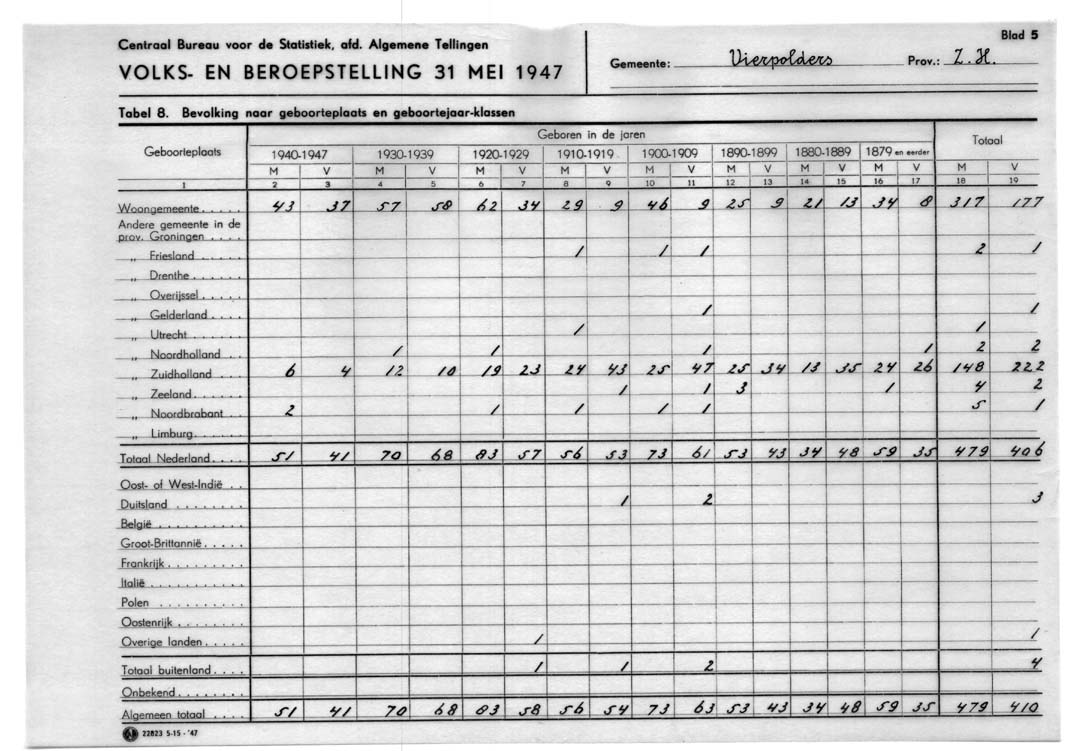 Blad 5
Centraal Bureau voor de Statistiek, afd. Algemene Tellingen
VOLKS- EN BEROEPSTELLING 31 MEI 1947
Gemeente: Vierpolders Prov.: Z.H.
Tabel 8. Bevolking naar geboorteplaats en geboortejaar-klassen
Geboorteplaats Geboren in de jaren Totaal
1940-1947 1930-1939 1920-1929 1910-1919 1900-1909 1890-1899 1880-1889 1879 en eerder
M V M V M V M V M V M V M V M V M V
1 2 3 4 5 6 7 8 9 10 11 12 13 14 15 16 17 18 19
Woongemeente..... 43 37 57 58 62 34 29 9 46 9 25 9 21 13 34 8 317 177
Andere gemeente in de
prov. Groningen ....
„ Friesland ...... 1 1 1 2 1
„ Drenthe.......
„ Overijssel......
„ Gelderland..... 1 1
„ Utrecht....... 1 1
„ Noordholland .. 1 1 1 1 2 2
„ Zuidholland ... 6 4 12 10 19 23 24 43 25 47 25 34 13 35 24 26 148 222
„ Zeeland....... 1 1 3 1 4 2
„ Noordbrabant .. 2 1 1 1 1 5 1
„ Limburg.......
Totaal Nederland.... 51 41 70 68 83 57 56 53 73 61 53 43 34 48 59 35 479 406
Oost- of West-Indië ..
Duitsland ........ 1 2 3
België ..........
Groot-Brittannië.....
Frankrijk ..........
Italië ...........
Polen ..........
Oostenrijk ........
Overige landen..... 1 1
Totaal buitenland.... 1 1 2 4
Onbekend........
Algemeen totaal .... 51 41 70 68 83 58 56 54 73 63 53 43 34 48 59 35 479 410
22823 5-15-'47